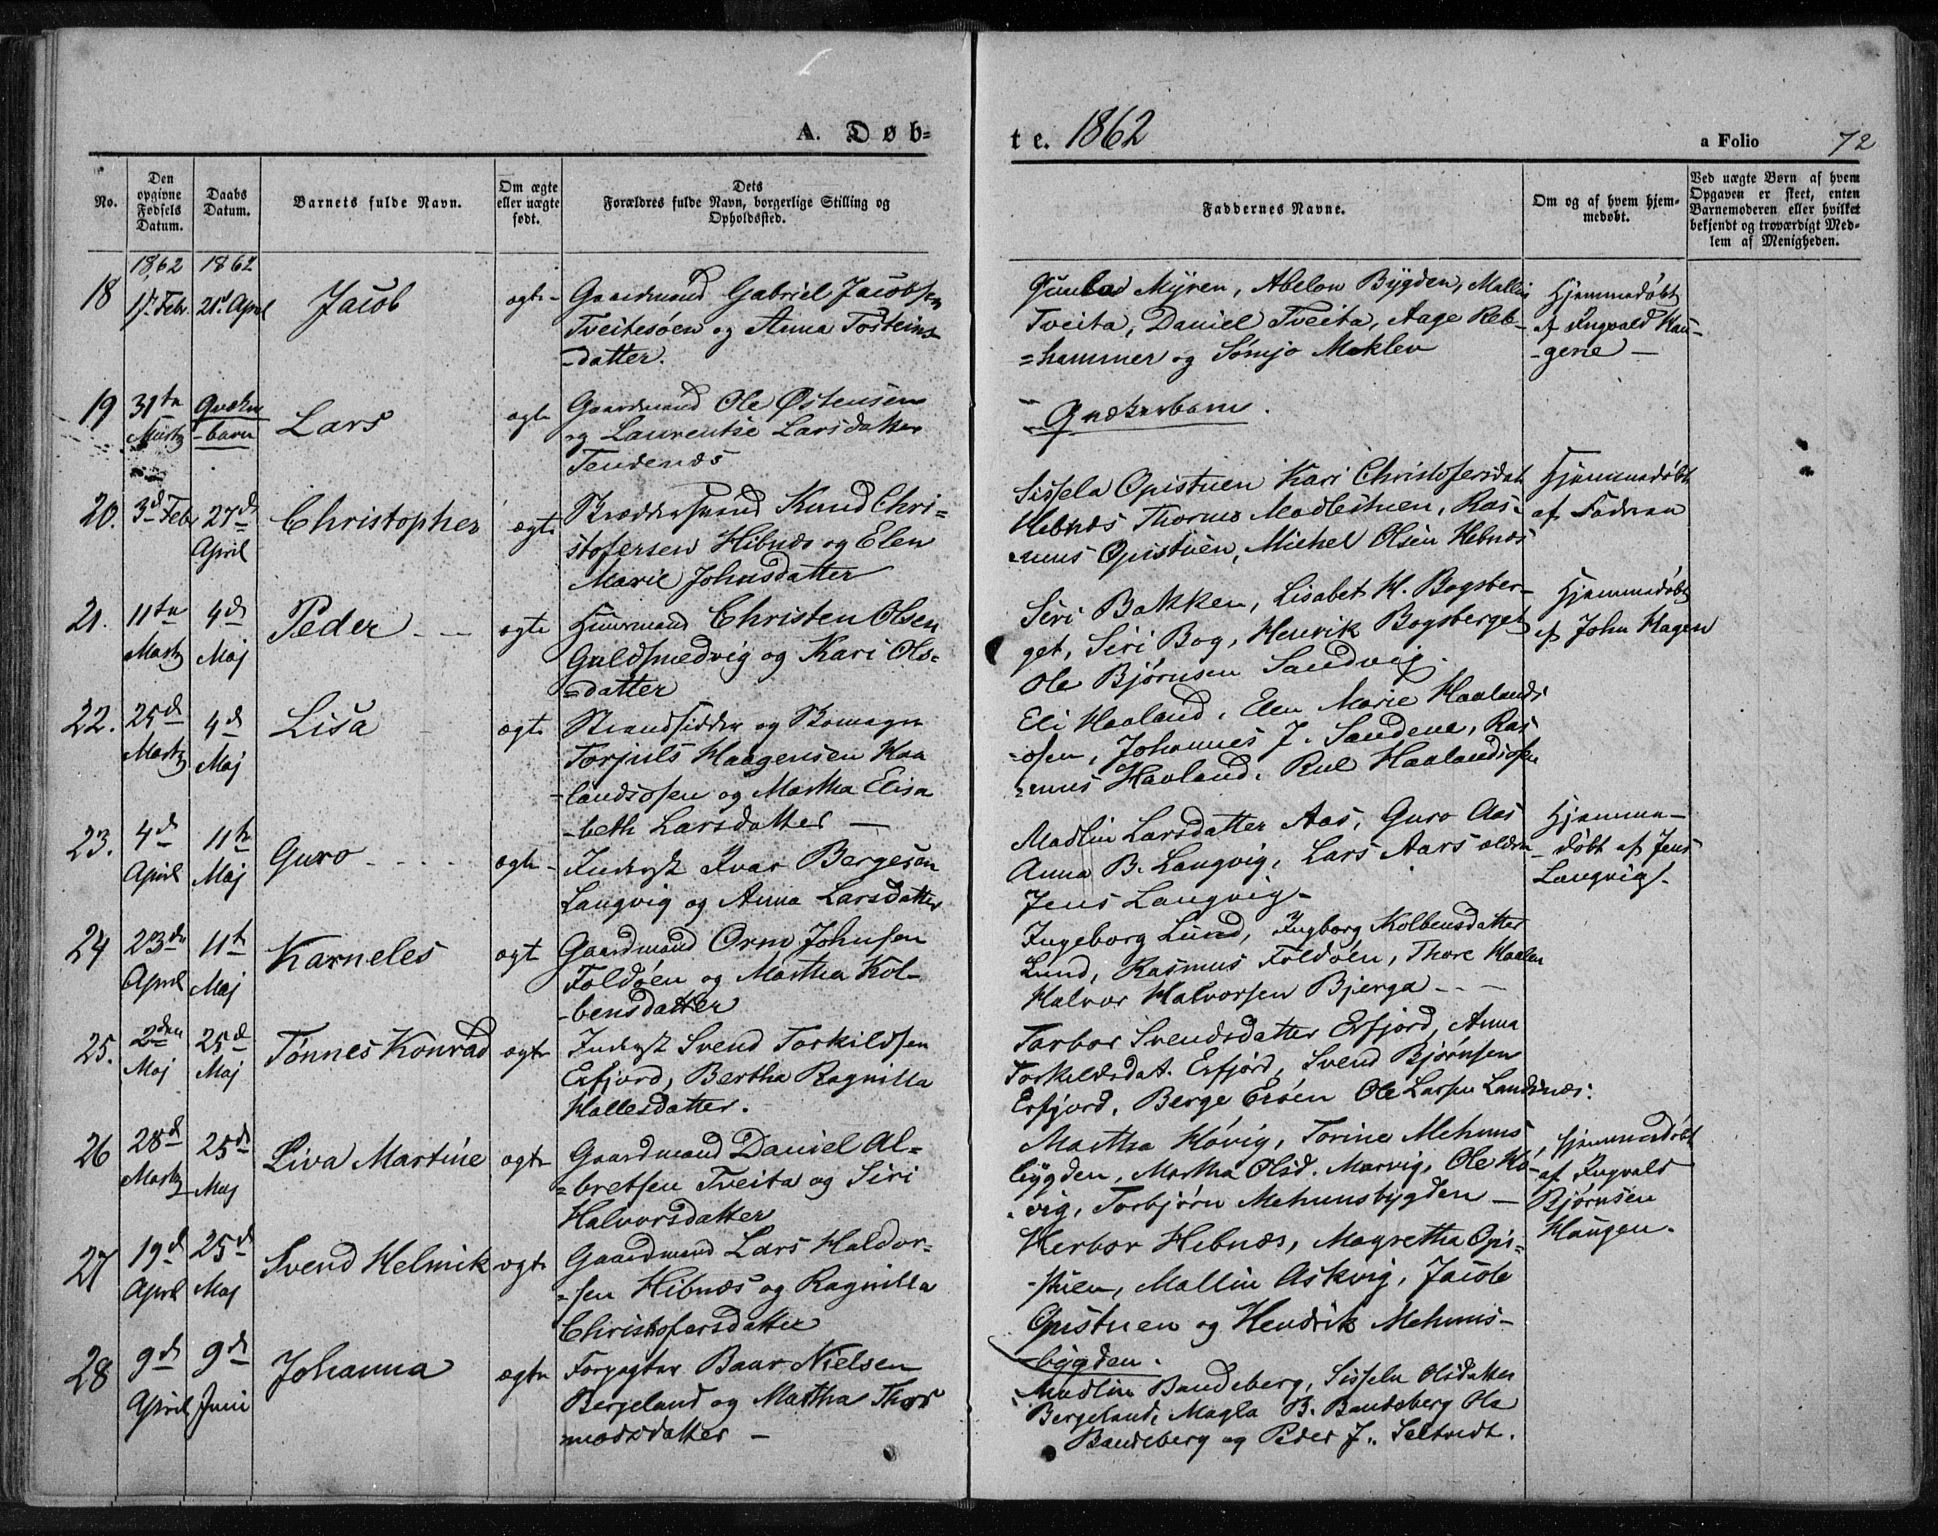 A. Døb-
te. 1862
a Folio 72
No.
Den
opgivne
Fødsels
Datum.
Daabs
Datum.
Barnets fulde Navn.
Om ægte
eller uægte
født.
Dets
Forældres fulde Navn, borgerlige Stilling og
Opholdssted.
Faddernes Navne.
Om og af hvem hjem-
medøbt.
Ved uægte Børn af hvem
Opgaven er skeet, enten
Barnemoderen eller hvilket
bekjendt og troværdigt Med-
lem af Menigheden.
1862 1862
18 Febr. 21d April Jacob ægte Gaardmand Gabriel Jacobsen
Tveitesøen og Anna Tosteins-
-datter.
Myren, Abelon Bygden, Mallin
Tveita, Daniel Tveita, Aage Reb-
=hammer og Maklev
Hjemmedøbt
af Ingvald Hau-
-gene -
19 31te Martz Qvæker
-barn
Lars ægte Gaardmand Ole Østensen
og Laurentse Larsdatter
Tendenæs
Qvækerbarn.
20. 3d Febr 27d April Christopher ægte Knud Chri-
stofersen Hibnæs og Elen
Marie Johnsdatter
Sissela Opistuen Kari Christofersdat
Hebnæs Thormo Madlestuen, Ras-
mus Opistuen, Michel Olsen Hebnæs
Hjemmedøbt
af Faderen
21. 11te Martz 4d Maj Peder ægte Huusmand Christen Olsen
Guldsmedvig og Kari Ols-
=datter
Seri Bakken, Lisabet H. Bogsber-
get, Siri Bog, Henrik Bogsberget
Ole Bjørnsen Sandvig.
Hjemmedøbt
af John Hagen
22. 25d Martz 4d Maj Lisa ægte Strandsidder og Skomager
Torjuls Haagensen Haa
-landsosen og Martha Elisa
-beth Larsdatter -
Eli Haaland, Elen Marie Haalands
-osen, Johannes J. Sandene, Ras
-mus Haaland. Haalandsosen
23. 4d April 11te Maj Guro ægte Inderst Ivar Bergesen
Langvig og Anna Larsdatter
Madlin Larsdatter Aas, Guro Aas
Anna B. Langvig, Lars Aars
Jens Langvig-
Hjemme-
-døbt af Jens
Langvig.
24 23de April 11te Maj Karneles ægt Gaardmand Orm Johnsen
Foldøen og Martha Kol-
-bensdatter
Ingeborg Lund, Ingborg Kolbensdatter
Lund, Rasmus Foldøen, Thore Haalen
Halvor Halvorsen Bjerga - -
25. 2den Maj 25d Maj Tønnes Konrad ægte Inderst Svend Torkildsen
Erfjord, Bertha Ragnilla
Hallesdatter.
Torbor Svendsdatter Erfjord, Anna
Torkeldsdat. Erfjord, Svend Bjørnsen
Erfjord, Berge Erøen Ole Larsen Landsnæs.
26 28d Martz 25d Maj Liva Martine ægte Gaardmand Daniel Al-
=bretsen Tveita og Siri
Halvorsdatter
Martha Høvig, Torine Mehuus
bygden, Martha Olsd. Marvig, Ole Hø-
-vig, Torbjørn Mehuusbygden -
Hjemmedøbt
af Ingvald
Bjørnsen
Haugen.
27 19d April 25d Maj Svend Helmik ægte Gaardmand Lars Haldor-
-sen Hibnæs og Ragnilla
Christofersdatter
Herbor Hebnæs, Magretha Opi-
-stuen, Mallin Askvig, Jacob
Opistuen og Hendrik Mehuus-
-bygden.
28 9d April 9d Juni Johanna ægte Forpagter Baar Nielsen
Bergeland og Martha Thor
modsdatter -
Madlin Bandeberg, Sissela Olsdatter
Bergeland, Magla B. Bandeberg Ola
Bandeberg og Peder J. Seltvedt.